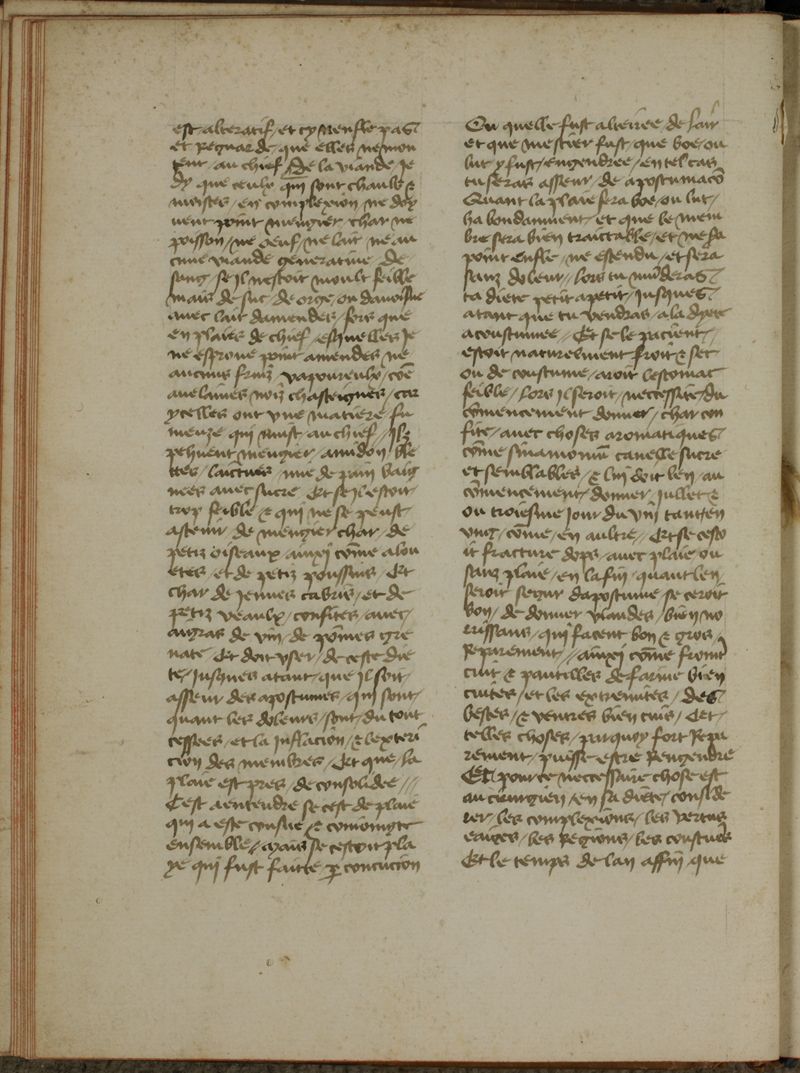 est alteratif / et cy nenfle pas
et reguarde que elles ne mon
tent au chief / De la viande Je
dy que ceulx qui sont chaulx &
moistes / en complexion / ne doy
uent point mengier char ne
poisson / ne oeuf / ne lait ne au
cune viande generatiue / De
sang / se Il nestoit moult feible
mais de suc de orge / ou dauoisne
auec lait damendes / fors que
en plaies de chief / esquelles Je
ne espreuue point amendes ne
aucuns fruiz vapoureulx / cōe
auelaines noiz chasteignes / car
ycelles ont vne matiere fu
meuze qui nuist au chief // Ilz
peuuent mengier / amidon ble
tes / laictues / mie de pain baig
nees auec sucre Et se Il estoit
trop feible & qui ne se peust
astenir de mengier char / de
petiz oiseaux / ainxi cōme alou
etes / et de petiz poussins / Et
char de jeunes cabris / et de
petiz veaulx / confites / auec /
aigras de vin / de pōmes gre
nate / Et doit vser / de ceste die
te / Jusques atant / que Il soit /
asseur des apostumes / qui sont /
quant les doleurs / sont / du tout
cessees / et la Inflacion / & lexteri
cion des membres / Et que / la
plaie est pres / de consolidee ///
Cest a entendre se cest de plaie
qui a este cousue / & conioingte
ensemble // Mais se cestoit pla
ye qui fust faitte / ꝑ concucion
Ou quelle fust alteree de lair
et que mestier fust que boe / ou
lut y fust / engendree / en tel cas
tu seras asseur / de apostumacō
Quant la plaie fera boe / ou lut /
habondanment / et que le mem
bre sera bien traictable / et ne sa
point enfle / ne estendu / et sera
sanz doleur // lors tu mūderas
ta diete petit apetit / Jusques
atant que tu vendras / a la dyete
acoustumee // Et se le pacient /
estoit naturelment froit & sec
ou de coustume / aroit lestomac
feible / Lors Il seroit / neccessite / du
cōmencement donner / char con
fite / auec choses aromatiques
cōme sinamomū canelle sucre
et semblables / & lui doit len / au
cōmencement / donner / jullet &
ou troiesme Jour du vin / tant en
vng / cōme / en aultre // Et se cesto
it fracture dops / auec plaie / ou
sanz plaie / en la fin / quant len
seroit segur dapostume / se ceroit
bon / de donner viandes / bien no
rrissans / qui facent bon & gros /
Reparement // ainxi cōme fromt
cuit & pantilles de farine bien
cuites / et les extremites / des
bestes / & ventres bien cuis / Et /
telles choses / par quoy fort Repa
rement / puisse estre Rengendre
Et pour ce neccessaire chose est
au cirurgien / en sa diete / conside
rer / les complexions / les vertus
eaiges / les Regions / les coustues
Et le temps de lan affin que